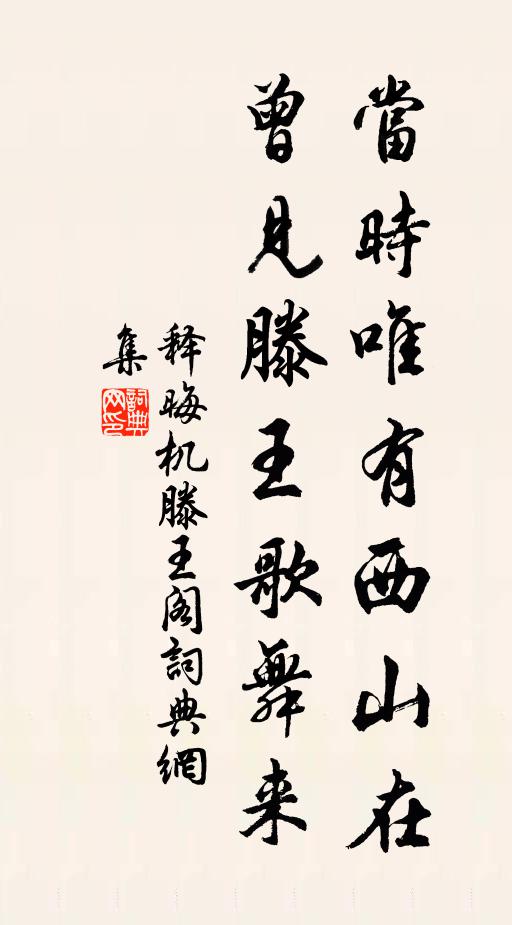 當時唯有西山在
曾見滕王歌舞来
释晦机滕王阁詞典網
集
詞典
网印